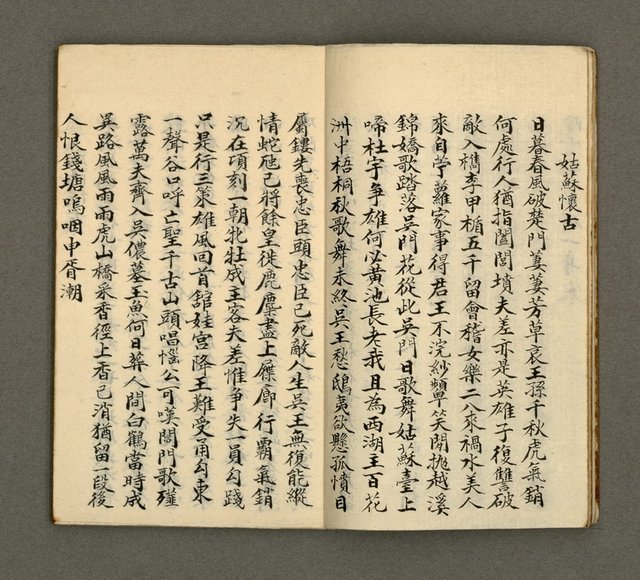 姑蘇懷古
日暮春風破楚門萋萋芳草哀王孫千秋虎氣銷
何處行人猶指闔閭墳夫差亦是英雄子復讐破
敵入檇李甲楯五千留會稽女樂二八來禍水美人
來自苧蘿家事得君王不浣紗顰笑閒拋越溪
錦嬌歌踏落吳門花從此吳門日歌舞姑蘇臺上
啼杜宇爭雄何必黃池長老我且為西湖王百花
洲中梧桐秋歌舞未終吳王愁鴟夷欲懸孤憤目
屬鏤先喪忠臣頭忠臣已死敵人生吳王無復能縱
情蛇虺已將餘皇徙鹿麋盡上屧廊行霸氣銷
沉在頃刻一朝牝牡成王客夫差惟爭失一員勾踐
只是行三策雄風回首館娃宮降王難受甬勾東
一聲谷口呼亡聖千古山頭唱惱公可嘆閶門歌殣
露萬夫齊入吳儂墓玉魚何日葬人間白鶴當時成
吳路風風雨雨虎山橋采香徑上香已消猶留一段後
人恨錢塘嗚咽申胥潮